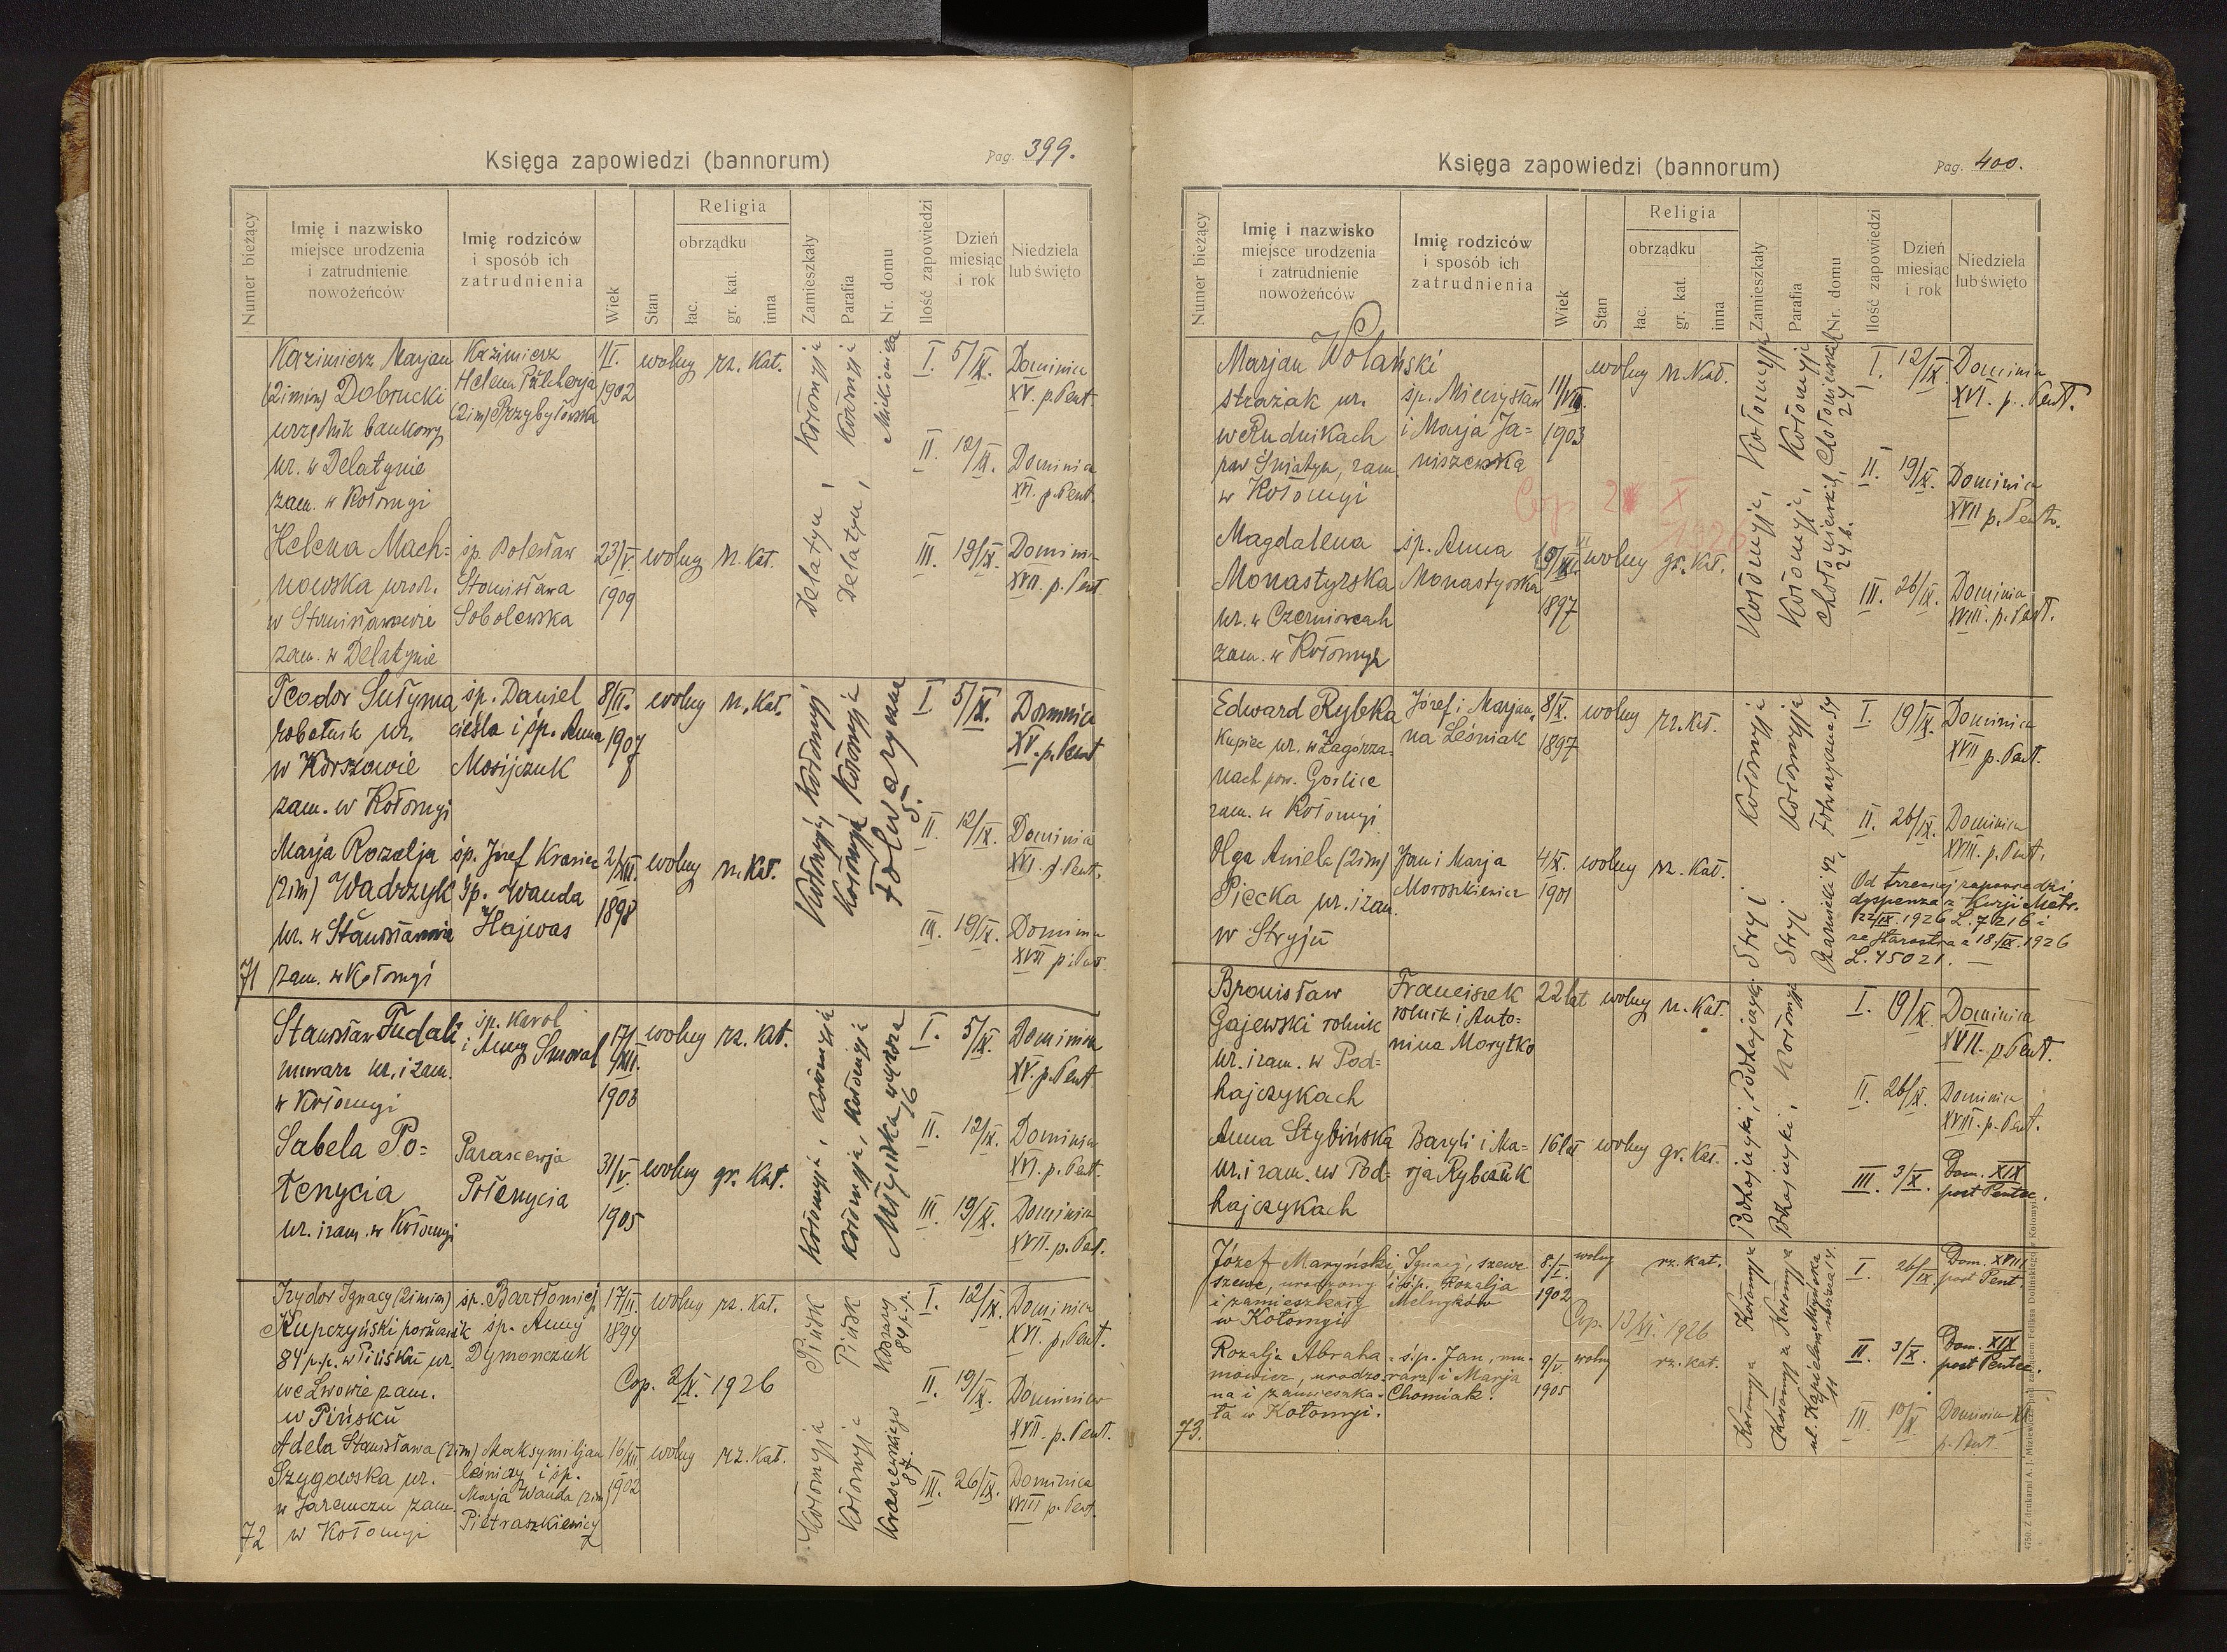 Księga zapowiedzi (bannorum)
Pag. 399.
Numer bieżący
Imię i nazwisko
miejsce urodzenia
i zatrudnienie
nowożeńców
Imię rodziców
i sposób ich
zatrudnienia
Wiek
Stan
Religia
obrządku
łac.
gr. kat.
inna
Zamieszkały
Parafia
Nr. domu
Ilość zapowiedzi
Dzień
miesiąc
i rok
Niedziela
lub święto
Kazimierz Marjan
(2 imion) Dobrucki
urzędnik bankowy
ur. w Delatynie
zam. w Kołomyi
Kazimierz
Helena Pulcherja
(2im) Przybyłowska
1/I.
1902
wolny rz. Kat.
Delatyn, Kołomyja
Delatyn, Kołomyja
I. 5/IX. Dominica
XV. p. Pent.
II. 12/IX. Dominica
XVI. p. Pent.
III. 19/IX. Dominica
XVII. p. Pent
Helena Mach=
nowska urodz.
w Stanisławowie
zam. w Delatynie
śp. Bolesław
Stanisława
Sobolewska
23/V.
1909
wolny rz. Kat.
Teodor Sułyma
robotnik ur.
w Korszowie
zam. w Kołomyi
śp. Daniel
cieśla i śp. Anna
Mosijczuk
8/II.
1907
wolny rz. Kat.
Kołomyja Kołomyja
Kołomyja Kołomyja
Folwarczna
5.
I. 5/IX. Dominica
XV. p. Pent
II. 12/IX. Dominica
XVI. p. Pent.
III. 19/IX. Dominica
XVII p. Pent.
Marja Rozalja
(2im) Wadrzyk
ur. w Stanisławowie
71 zam. w Kołomyi
śp. Józef
śp. Wanda
Hajwas
2/XII.
1898
wolny rz. Kat.
Stanisław Fudali
murarz ur. i zam.
w Kołomyi
śp. Karol
i Anny Smoral
17/XII.
1903
wolny rz. Kat.
Kołomyja, Kołomyja
Kołomyja, Kołomyja
Młyńska wyższa
16
I. 5/IX. Dominica
XV. p. Pent
II. 12/IX. Dominica
XVI. p. Pent.
III. 19/IX. Dominica
XVII. p. Pent.
Sabela Po=
tenycia
ur. i zam. w Kołomyi
Parascewja
Potenycia
31/V.
1905
wolny gr. Kat.
Izydor Ignacy (2imion)
Kupczyński porucznik
84 p.p. w Pińsku ur.
we Lwowie zam.
w Pińsku
śp. Bartłomiej
śp. Anny
Dymonczuk
17/II.
1894
wolny rz. Kat.
Cop. 2/X. 1926
Kołomyja Pińsk
Kołomyja Pińsk
Kraszewskiego Koszary
87. 84 p.p.
I. 12/IX. Dominica
XVI. p. Pent.
II. 19/IX. Dominica
XVII. p. Pent.
III. 26/IX. Dominica
XVIII p. Pent.
Adela Stanisława (2im)
Szygowska ur.
w Jaremczu zam.
72 w Kołomyi
Maksymiljan
leśniczy i śp.
Marja Wanda (2im)
Pietraszkiewicz
16/XII
1902
wolny rz. Kat.
Księga zapowiedzi (bannorum)
Pag. 400.
Numer bieżący
Imię i nazwisko
miejsce urodzenia
i zatrudnienie
nowożeńców
Imię rodziców
i sposób ich
zatrudnienia
Wiek
Stan
Religia
obrządku
łac.
gr. kat.
inna
Zamieszkały
Parafia
Nr. domu
Ilość zapowiedzi
Dzień
miesiąc
i rok
Niedziela
lub święto
Marjan Wolański
strażak ur.
w Rudnikach
pow Śniatyn, zam.
w Kołomyi
śp. Mieczysław
i Marja Ja=
niszewska
11/VIII.
1903
wolny rz. Kat.
Cop 2 X
1926
Kołomyja, Kołomyja
Kołomyja, Kołomyja
24 b. 24
I. 12/IX. Dominica
XVI. p. Pent.
II. 19/IX. Dominica
XVII p. Pent.
III. 26/IX. Dominica
XVIII. p. Pent.
Magdalena
Monastyrska
ur. w Czerniowcach
zam. w Kołomyi
śp. Anna
Monastyrska
1897
wolny gr. Kat.
Edward Rybka
Kupiec ur. w Zagórza-
nach pow. Gorlice
zam. w Kołomyi
Józef i Marjan-
na Leśniak
8/X.
1897
wolny rz. Kat.
Stryj. Kołomyja
Stryj. Kołomyja
I. 19/IX. Dominica
XVII p. Pent.
II. 26/IX. Dominica
XVIII. p. Pent.
Od trzeciej zapowiedzi
dyspenza z Kurji Metr.
22/IX. 1926 L. 7216 i
ze Starostwa z 18/IX. 1926
L. 45021. —
Olga Aniela (2im)
Piecka ur. i zam.
w Stryju
Jan i Marja
Moroszkiewicz
4/X.
1901
wolny rz. Kat.
Bronisław
Gajewski rolnik
ur. i zam. w Pod=
hajczykach
Franciszek
rolnik i Anto=
nina Morytko
22 lat wolny rz. Kat.
Podhajczyki, Podhajczyki
Podhajczyki, Kołomyja
I. 19/IX. Dominica
XVII. p. Pent.
II. 26/IX. Dominica
XVIII. p. Pent.
III. 3/X. Dom. XIX
post Pentec.
Anna Stybińska
ur. i zam. w Pod=
hajczykach
Baryli i Ma=
rja Rybczuk
16 lat wolny gr. Kat.
Józef Maryński,
szewc, urodzony
i zamieszkały
w Kołomyi
Ignacy, szewc
i śp. Rozalja
Melnyków
8./I.
1902
wolny rz. kat.
Cop. 13/XI. 1926
Kołomyja Kołomyja
Kołomyja Kołomyja
I. 26/IX. Dom. XVIII
post Pent.
II. 3/X. Dom. XIX
post Pentec.
III. 10/X. Dominica XX
p. Pent.
Rozalja Abraha-
mowicz, urodzo-
na i zamieszka-
ła w Kołomyi.
73.
śp. Jan, mu-
rarz i Marja
Chomiak.
9/V.
1905
wolny rz. kat.